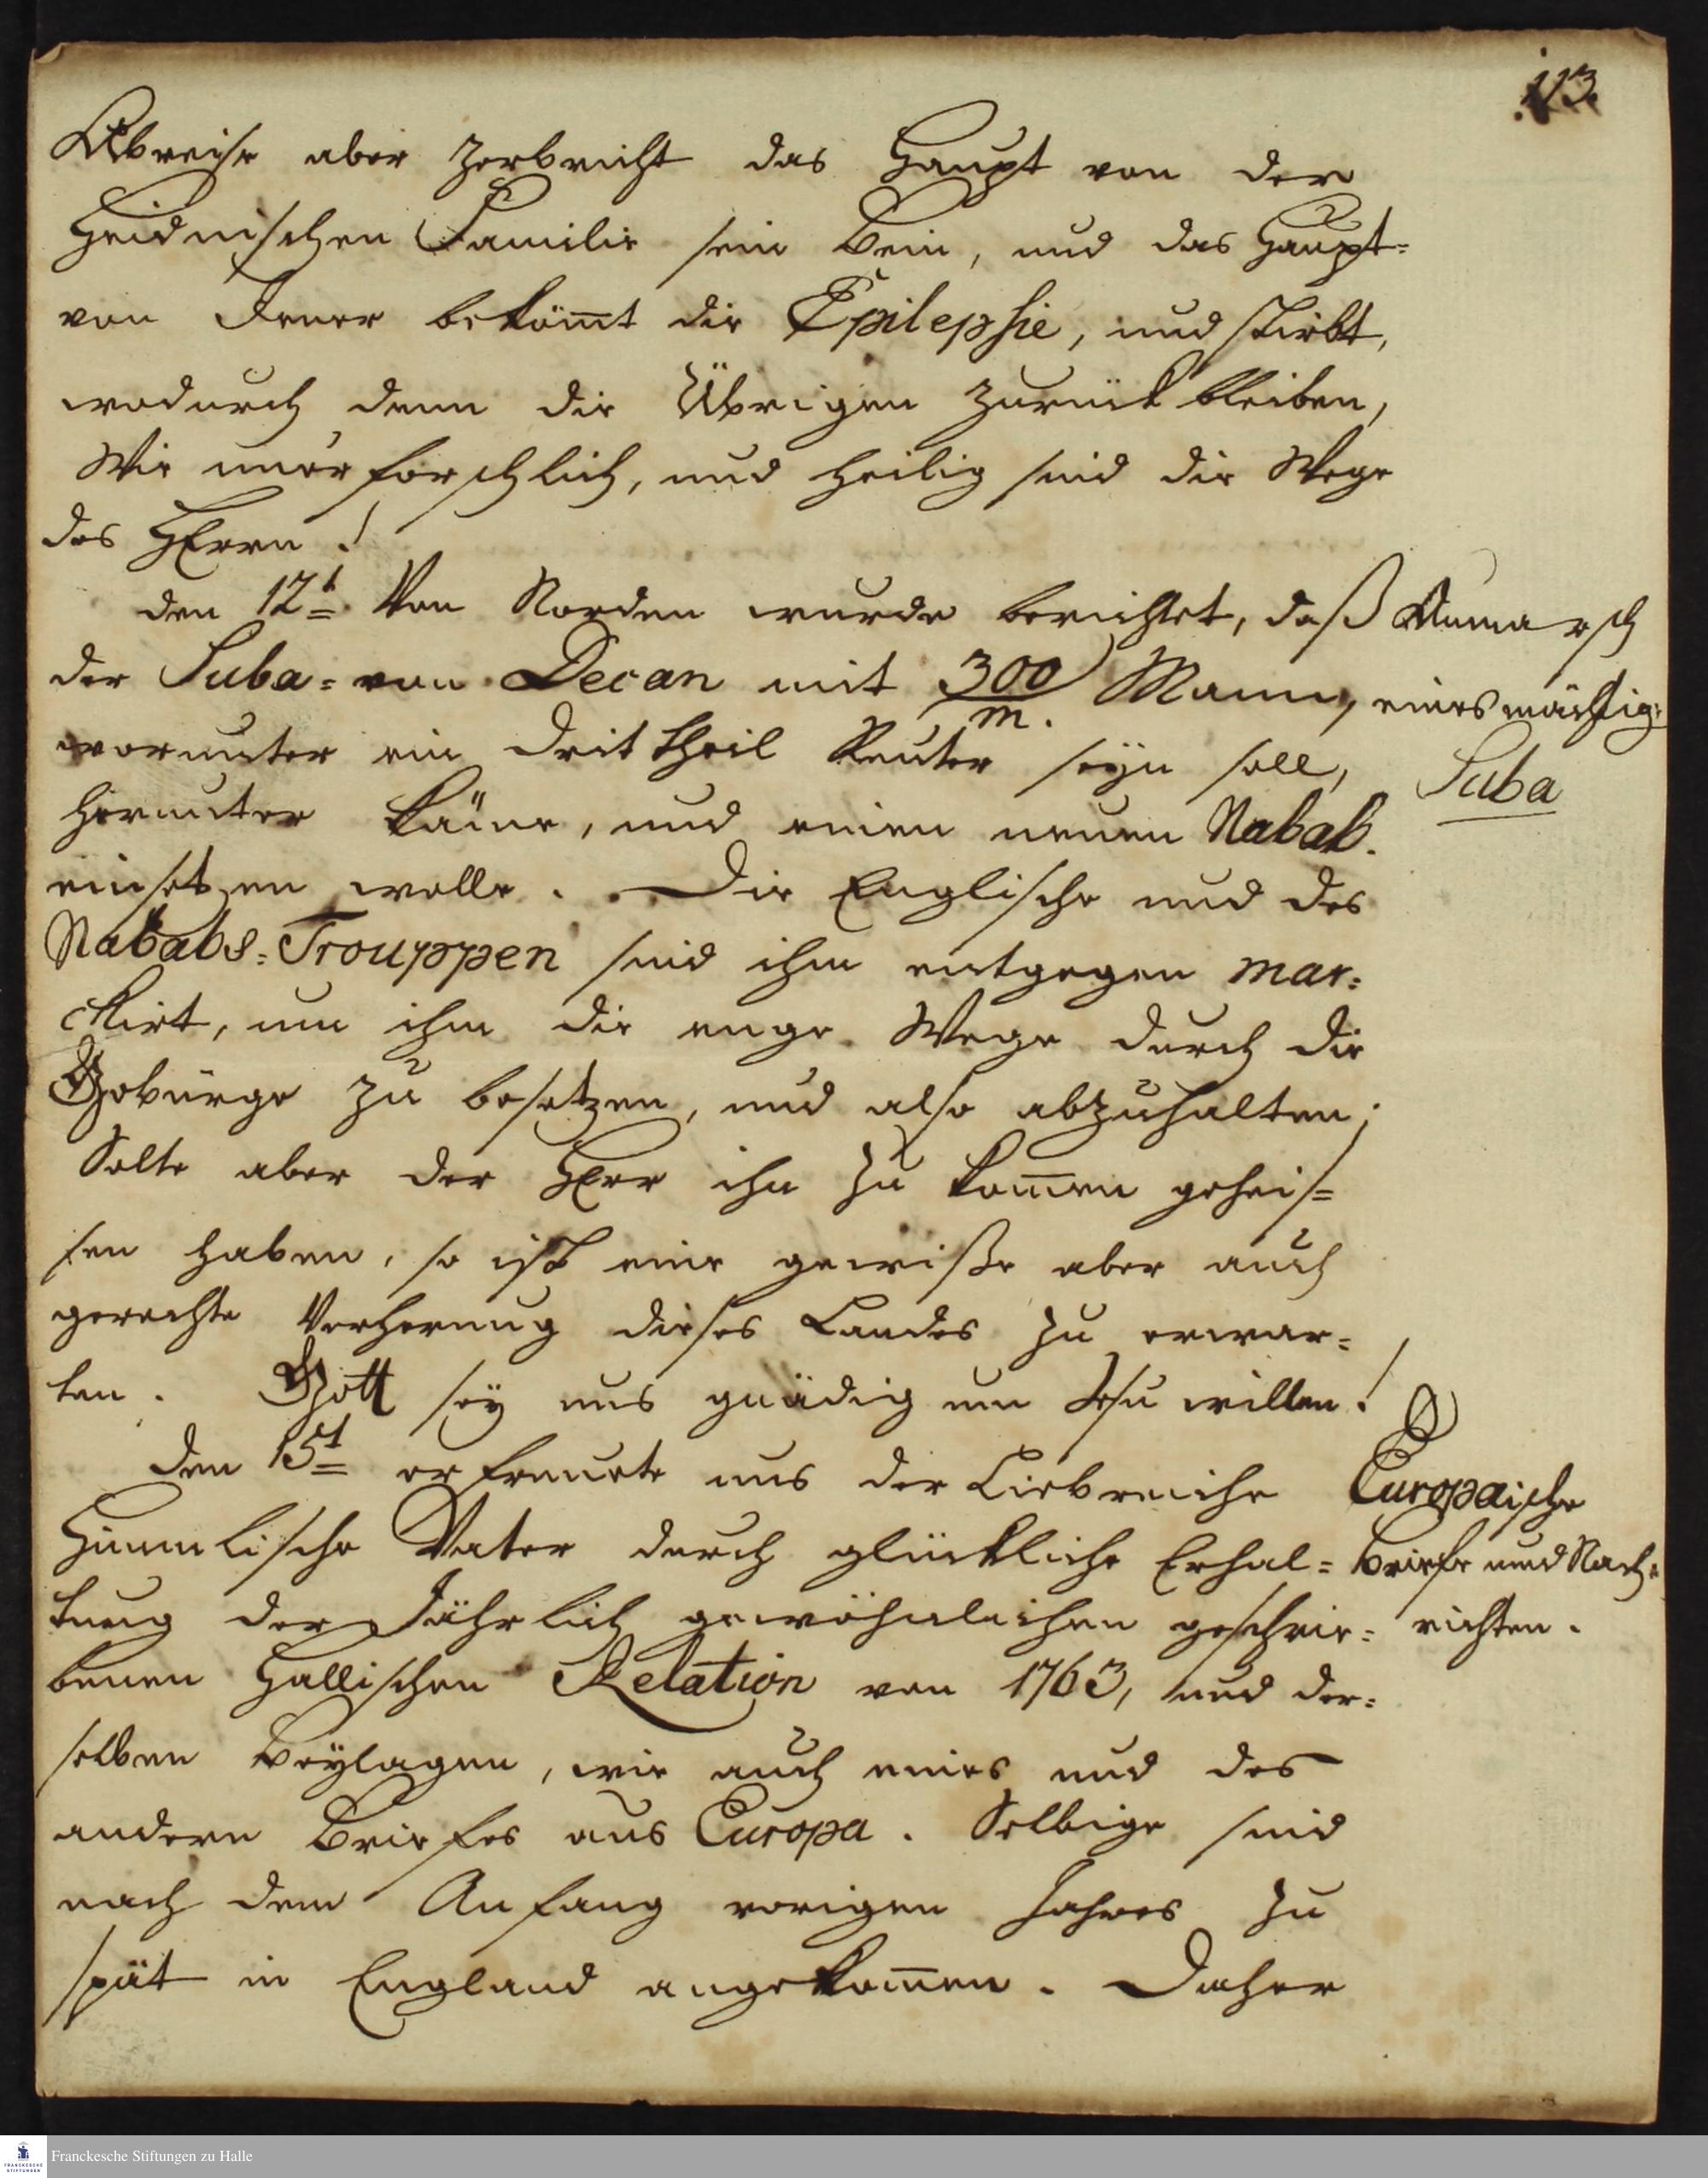 113.
Abreise aber zerbricht das Haupt von der
Heidnischen Familie sein Bein, und das Haupt-
von Jener bekom̅t die Epilepsie, und stirbt,
wodurch denn die Übrigen zurük bleiben,
Wie unerforschlich, und heilig sind die Wege
des HErrn!
den 12t. Von Norden wurde berichtet, daß
der Suba-von Decan mit 300/m. Mann,
worunter ein drittheil Reuter seyn soll,
herunter käme, und einen neuen Nabab.
einsetzen wolle. Die Englische und des
Nababs-Trouppen sind ihm entgegen mar-
chirt, um ihm die enge Wege durch die
Gebürge zu besetzen, und also abzuhalten;
Solte aber der HErr ihn zu kom̅en geheis-
sen haben, so ist eine gewiße aber auch
gerechte Verherung dieses Landes zu erwar-
ten. Gott sey uns gnädig um Jesu willen!
den 15t erfreuete uns der Liebreiche
Himmlische Vater durch glückliche Erhal-
tung der Jährlich gewöhnlichen geschrie-
benen Hallischen Relation von 1763, und der-
selben Beylagen, wie auch eines und des
andern Briefes aus Europa. Selbige sind
nach dem Anfang vorigen Jahres zu
spät in England angekom̅en. Daher
Anmarsch
eines mächtig-
Suba
Europaische
Briefe und Nach-
richten.
Franckesche Stiftungen zu Halle
FRANCKESCHE
STIFTUNGEN